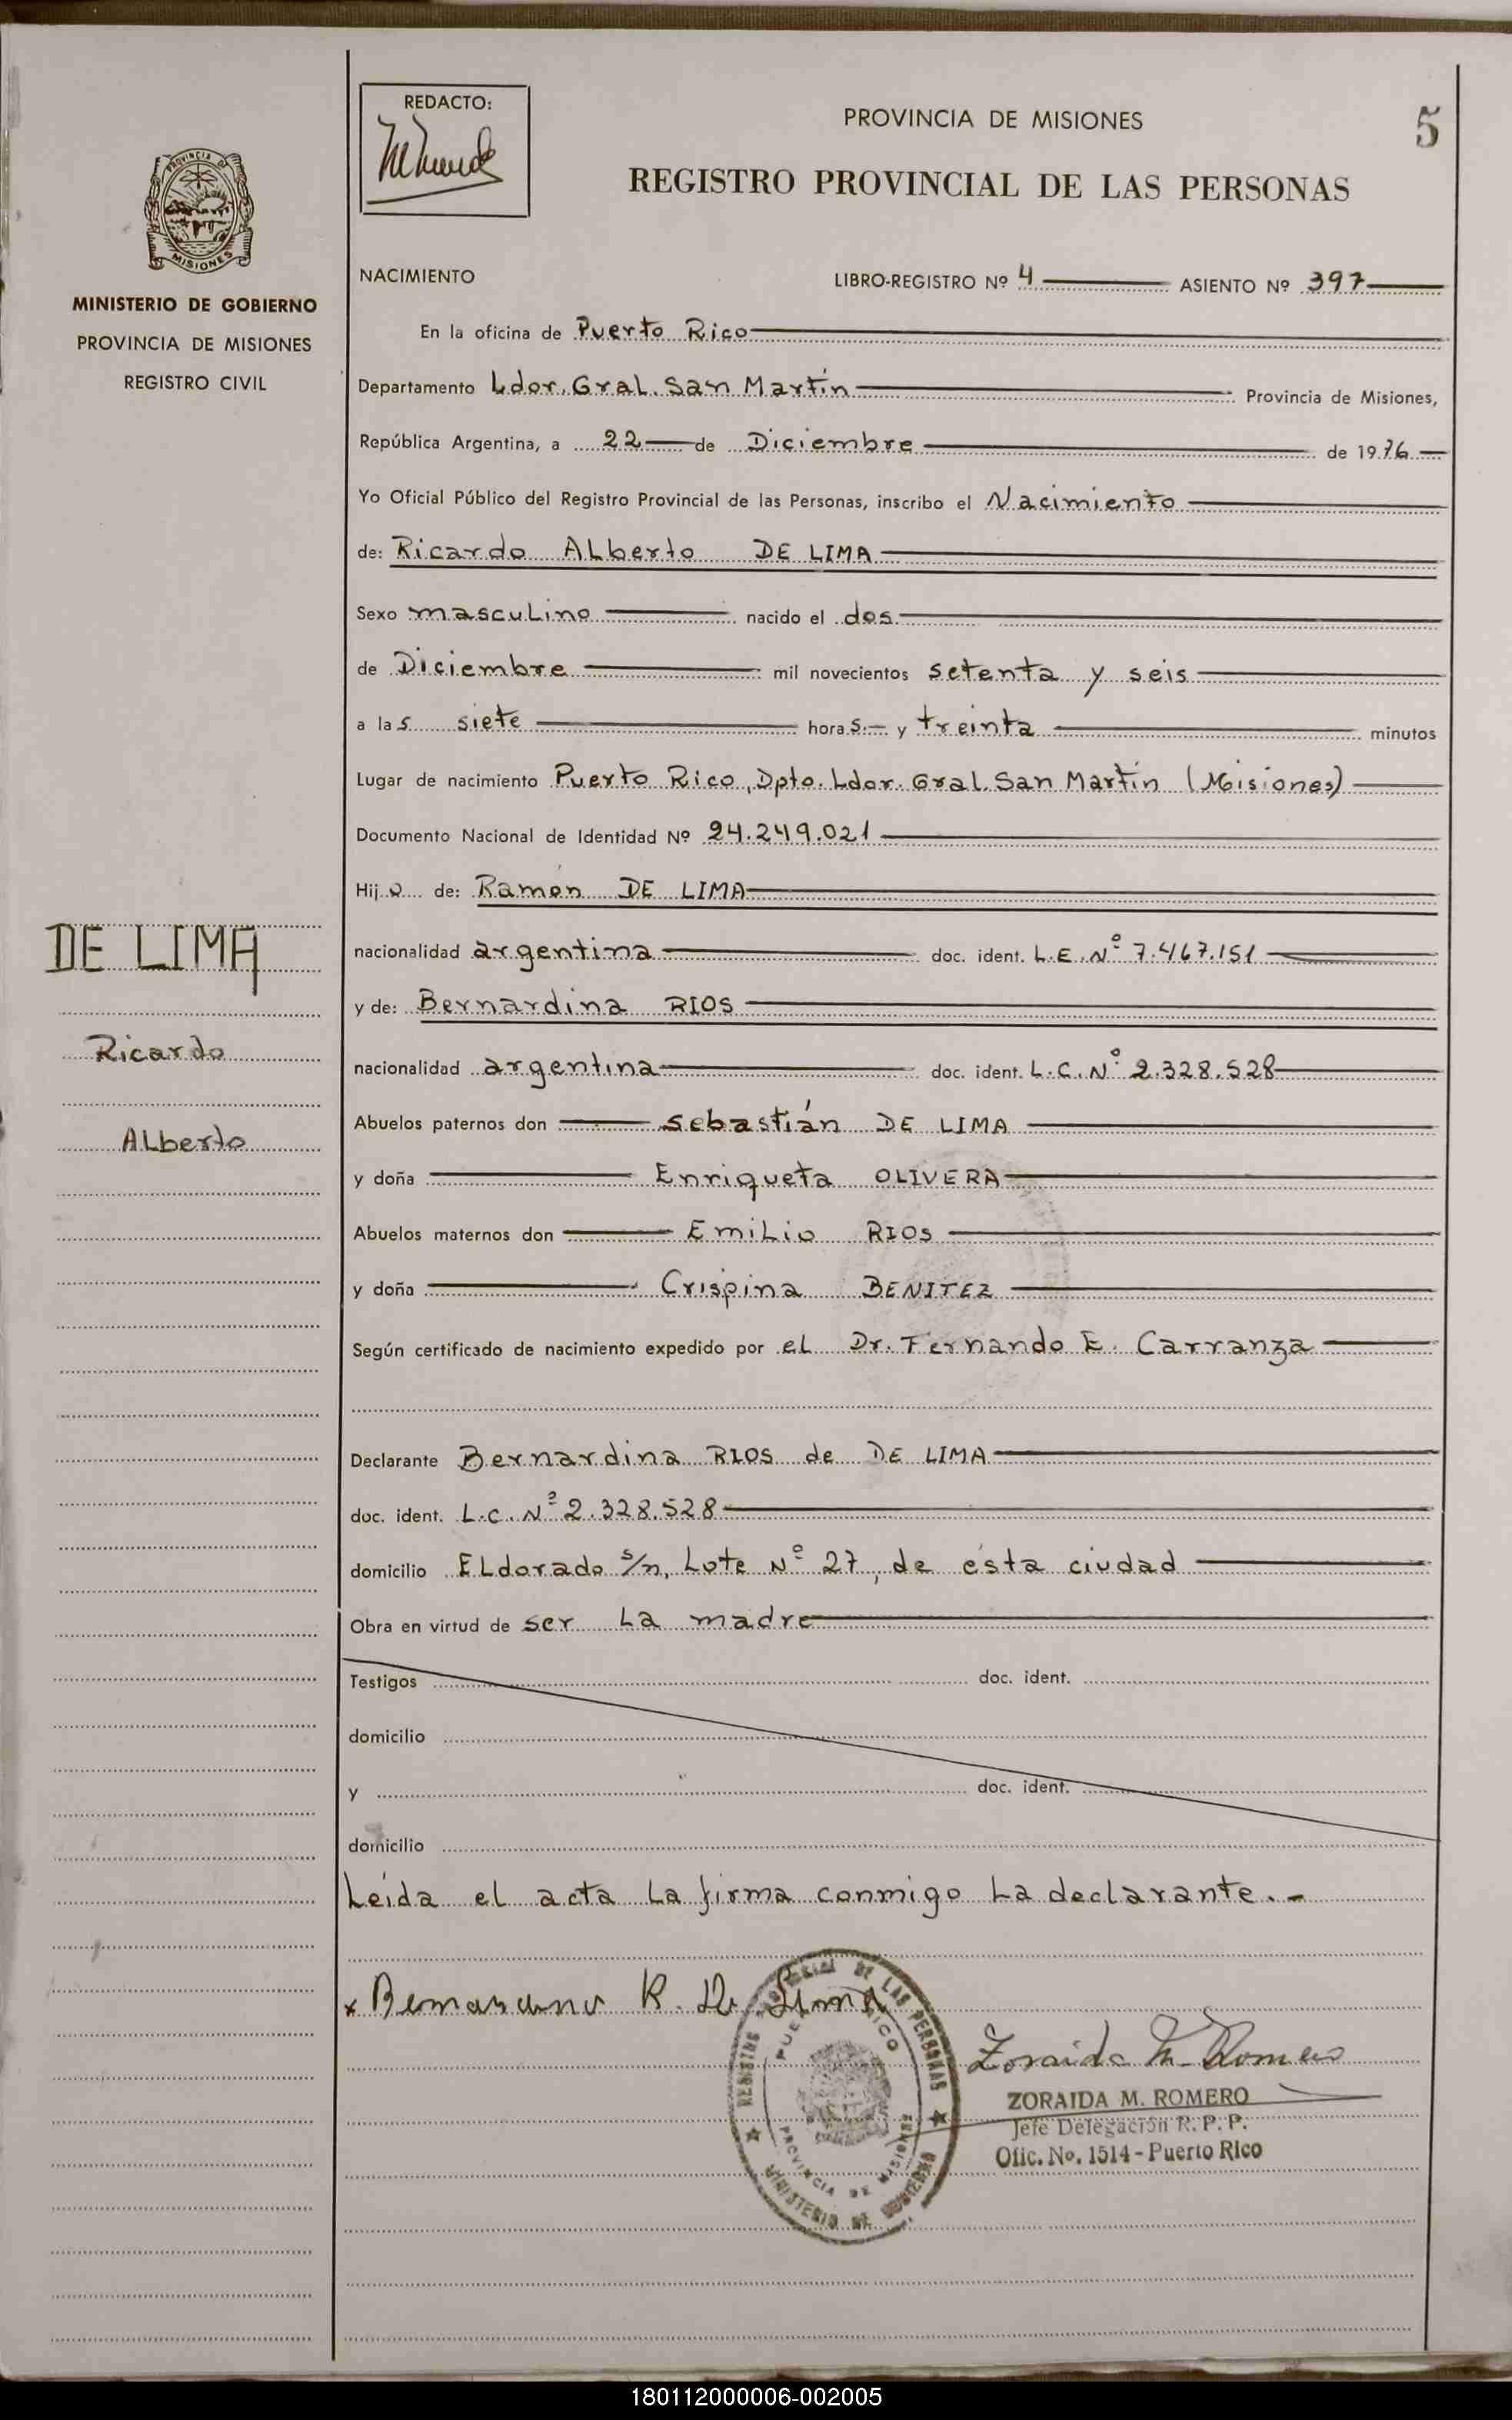 REDACTO:
PROVINCIA DE MISIONES
5
REGISTRO PROVINCIAL DE LAS PERSONAS
PROVINCIA DE
MISIONES
MINISTERIO DE GOBIERNO
PROVINCIA DE MISIONES
REGISTRO CIVIL
NACIMIENTO LIBRO-REGISTRO Nº 4 ASIENTO Nº 397
En la oficina de Puerto Rico
Departamento Ldor. Gral. San Martín Provincia de Misiones,
República Argentina, a 22 de Diciembre de 1976
Yo Oficial Público del Registro Provincial de las Personas, inscribo el Nacimiento
de: Ricardo Alberto DE LIMA
Sexo masculino nacido el dos
de Diciembre mil novecientos setenta y seis
a las siete horas.- y treinta minutos
Lugar de nacimiento Puerto Rico, Dpto. Ldor. Gral. San Martín (Misiones)
Documento Nacional de Identidad Nº 24.249.021
Hijo de: Ramón DE LIMA
DE LIMA
nacionalidad argentina doc. ident. L.E. Nº 7.467.151
y de: Bernardina RIOS
Ricardo
nacionalidad argentina doc. ident. L.C. Nº 2.328.528
Alberto
Abuelos paternos don Sebastián DE LIMA
y doña Enriqueta OLIVERA
Abuelos maternos don Emilio RIOS
y doña Crispina BENITEZ
Según certificado de nacimiento expedido por el Dr. Fernando E. Carranza
Declarante Bernardina RIOS de DE LIMA
doc. ident. L.C. Nº 2.328.528
domicilio ELdorado s/n, Lote Nº 27, de ésta ciudad
Obra en virtud de ser La madre
Testigos doc. ident.
domicilio
y doc. ident.
domicilio
Leída el acta La firma conmigo La declarante.-
x R. De Lima
REGISTRO PROVINCIAL DE LAS PERSONAS
PUERTO RICO
PROVINCIA DE MISIONES
MINISTERIO DE GOBIERNO
Zoraida M. Romero
ZORAIDA M. ROMERO
Jefe Delegación R. P. P.
Ofic. No. 1514 - Puerto Rico
180112000006-002005